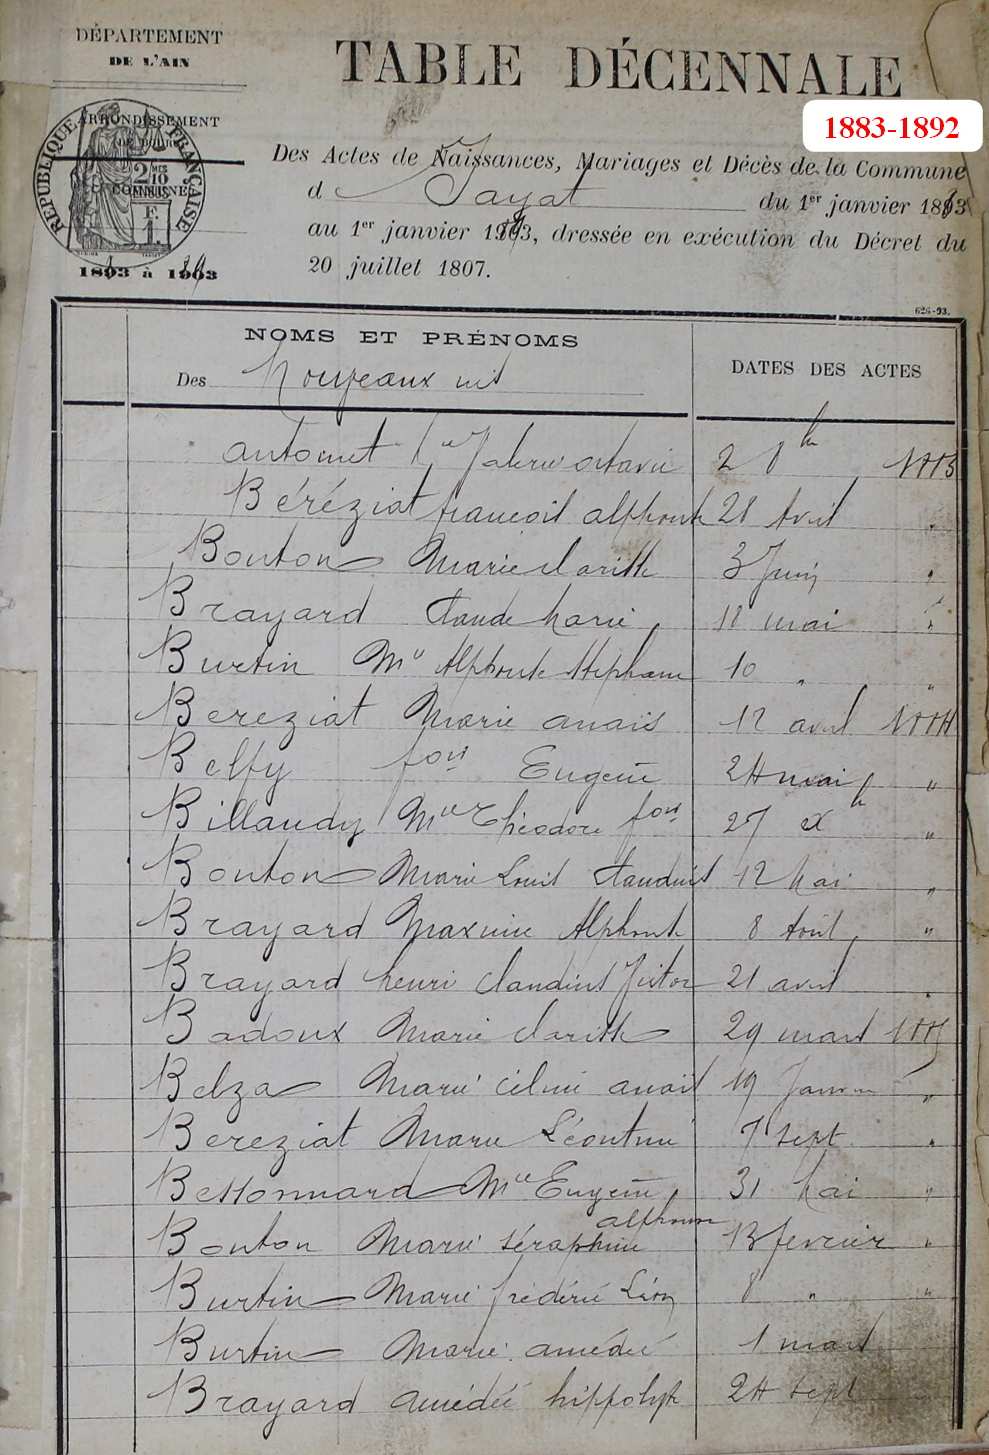 DÉPARTEMENT
DE L'AIN
TABLE DÉCENNALE
1883-1892
ARRONDISSEMENT
RÉPUBLIQUE FRANÇAISE
2/10
COMMUNE
F.
1.
1893 à 1903
Des Actes de Naissances, Mariages et Décès de la Commune
d e Jayat du 1er janvier 1883
au 1er janvier 1893, dressée en exécution du Décret du
20 juillet 1807.
626-93.
NOMS ET PRÉNOMS
Des Nouveaux nés
DATES DES ACTES
antoinet octavie 2 1883
Béréziat françois alphonse 28 Avril "
Bouton Marie clarisse 3 Juin "
Brayard Claude Marie 18 mai "
Burtin Me Alphonse Stéphane 10 " "
Bereziat Marie anais 12 avril 1884
Belfy fois Eugène 24 mai "
Billaudy Mie Théodore fois 27 Xbre "
Bouton Marie Louis Claudius 12 Mai "
Brayard Maxime Alphonse 8 Août "
Brayard henri Claudius Victor 21 avril "
Badoux Marie clarisse 29 mars 1885
Belza Marie céline anais 19 Janvier "
Bereziat Marie Léontine 7 sept "
Bessonnard Mie Eugène 31 Mai "
Bouton Marie Séraphine alphonsine 13 fevrier "
Burtin Marie frédéric Léon 8 " "
Burtin Marie amédée 1 mars
Brayard amédée hippolyte 24 sept